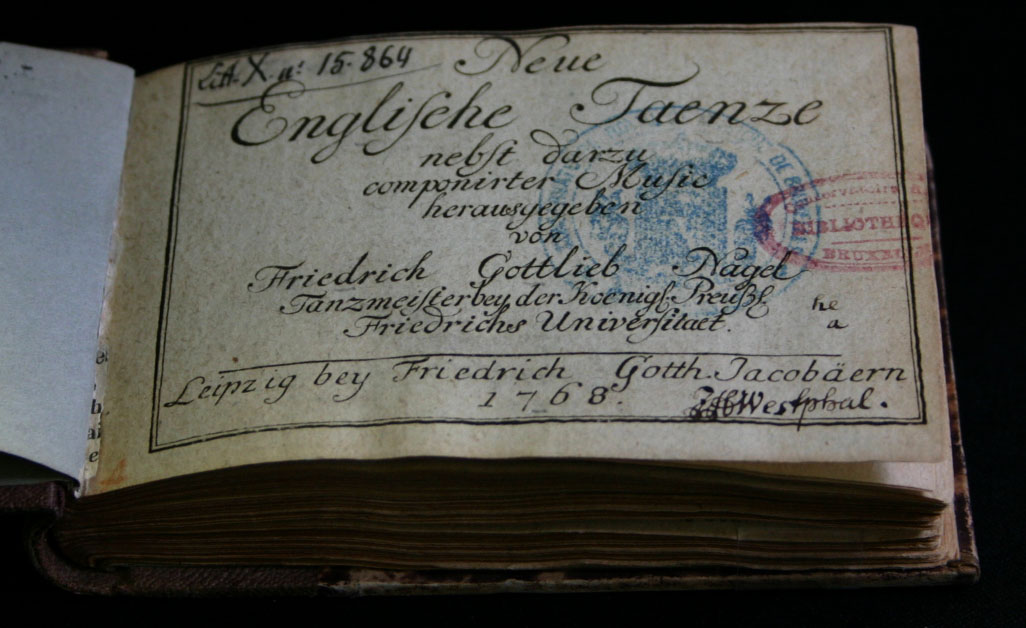 Litt. X. n: 15-864
Neue
Engliſche Taenze
nebſt darzu
componirter Muſic
herausgegeben
von
Friedrich Gottlieb Nagel
Tanzmeiſter bey der Koenigl. Preuſſ.
Friedrichs Univerſitaet.
he
a
Leipzig bey Friedrich Gotth. Jacobäern
1768.
Westphal.
BIBLIOTHEQ
BRUXE